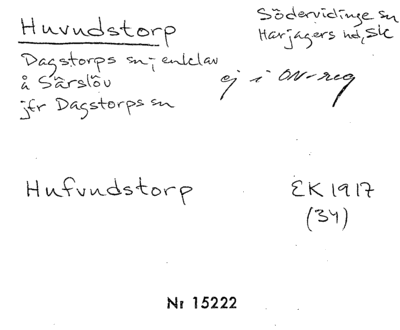 Huvudstorp
Södervidinge sn
Harjagers hd, Sk
Dagstorps sn; enklav
å Särslöv
ej i ON-reg
jfr Dagstorps sn
Hufvudstorp
EK 1917
(34)
Nr 15222